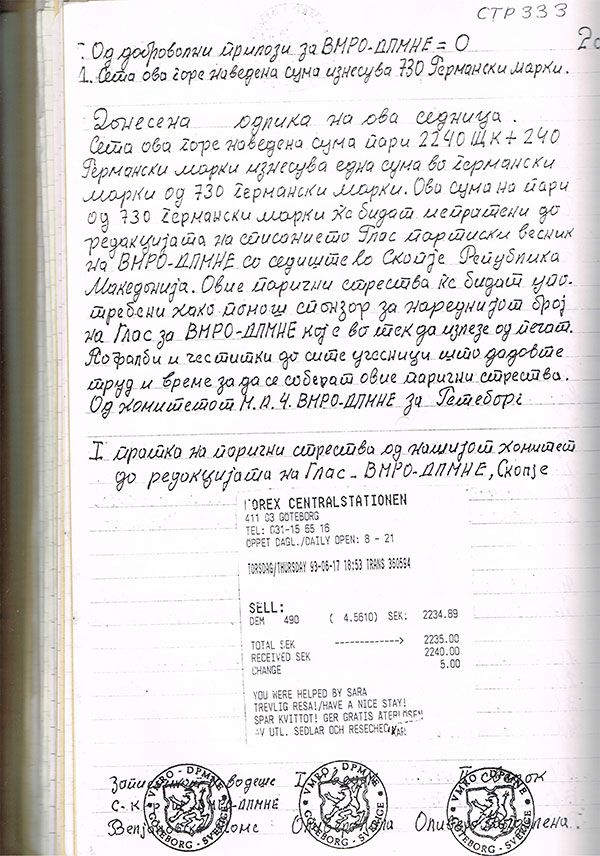 СТР 333
: Од доброволни прилози за ВМРО-ДПМНЕ = 0
1. Сета ова горе наведена сума изнесува 730 Германски марки.
Донесена одлика на ова седница.
Сета ова горе наведена сума пари 2240 ШК + 240
Германски марки изнесува една сума во германски
марки од 730 германски марки. Ова сума на пари
од 730 германски марки ќе бидат испратени до
редакцијата на списонието Глас партиски весник
на ВМРО-ДПМНЕ со седиште во Скопје Република
Македонија. Овие парични стрества ќе бидат упо-
требени како помош спонзор за наредниот број
на Глас за ВМРО-ДПМНЕ кој е во тек да излезе од печат.
Пофалби и честитки до сите учесници што дадовте
труд и време за да се соберат овие парични стрества.
Од комитетот М.А.Ч. ВМРО-ДПМНЕ за Гетеборг
I пратка на парични стрества од нашиот комитет
до редокцијата на Глас - ВМРО-ДПМНЕ, Скопје
FOREX CENTRALSTATIONEN
411 03 GÖTEBORG
TEL: 031-15 65 16
ÖPPET DAGL./DAILY OPEN: 8 - 21
TORSDAG/THURSDAY 93-06-17 18:53 TRANS 360584
SELL:
DEM 490 ( 4.5610) SEK: 2234.89
TOTAL SEK -------------> 2235.00
RECEIVED SEK 2240.00
CHANGE 5.00
YOU WERE HELPED BY SARA
TREVLIG RESA!/HAVE A NICE STAY!
SPAR KVITTOT! GER GRATIS ÅTERLÖSEN
AV UTL. SEDLAR OCH RESECHECKAR
VMRO - DPMNE GÖTEBORG - SVERIGE
VMRO - DPMNE GÖTEBORG - SVERIGE
VMRO - DPMNE GÖTEBORG - SVERIGE